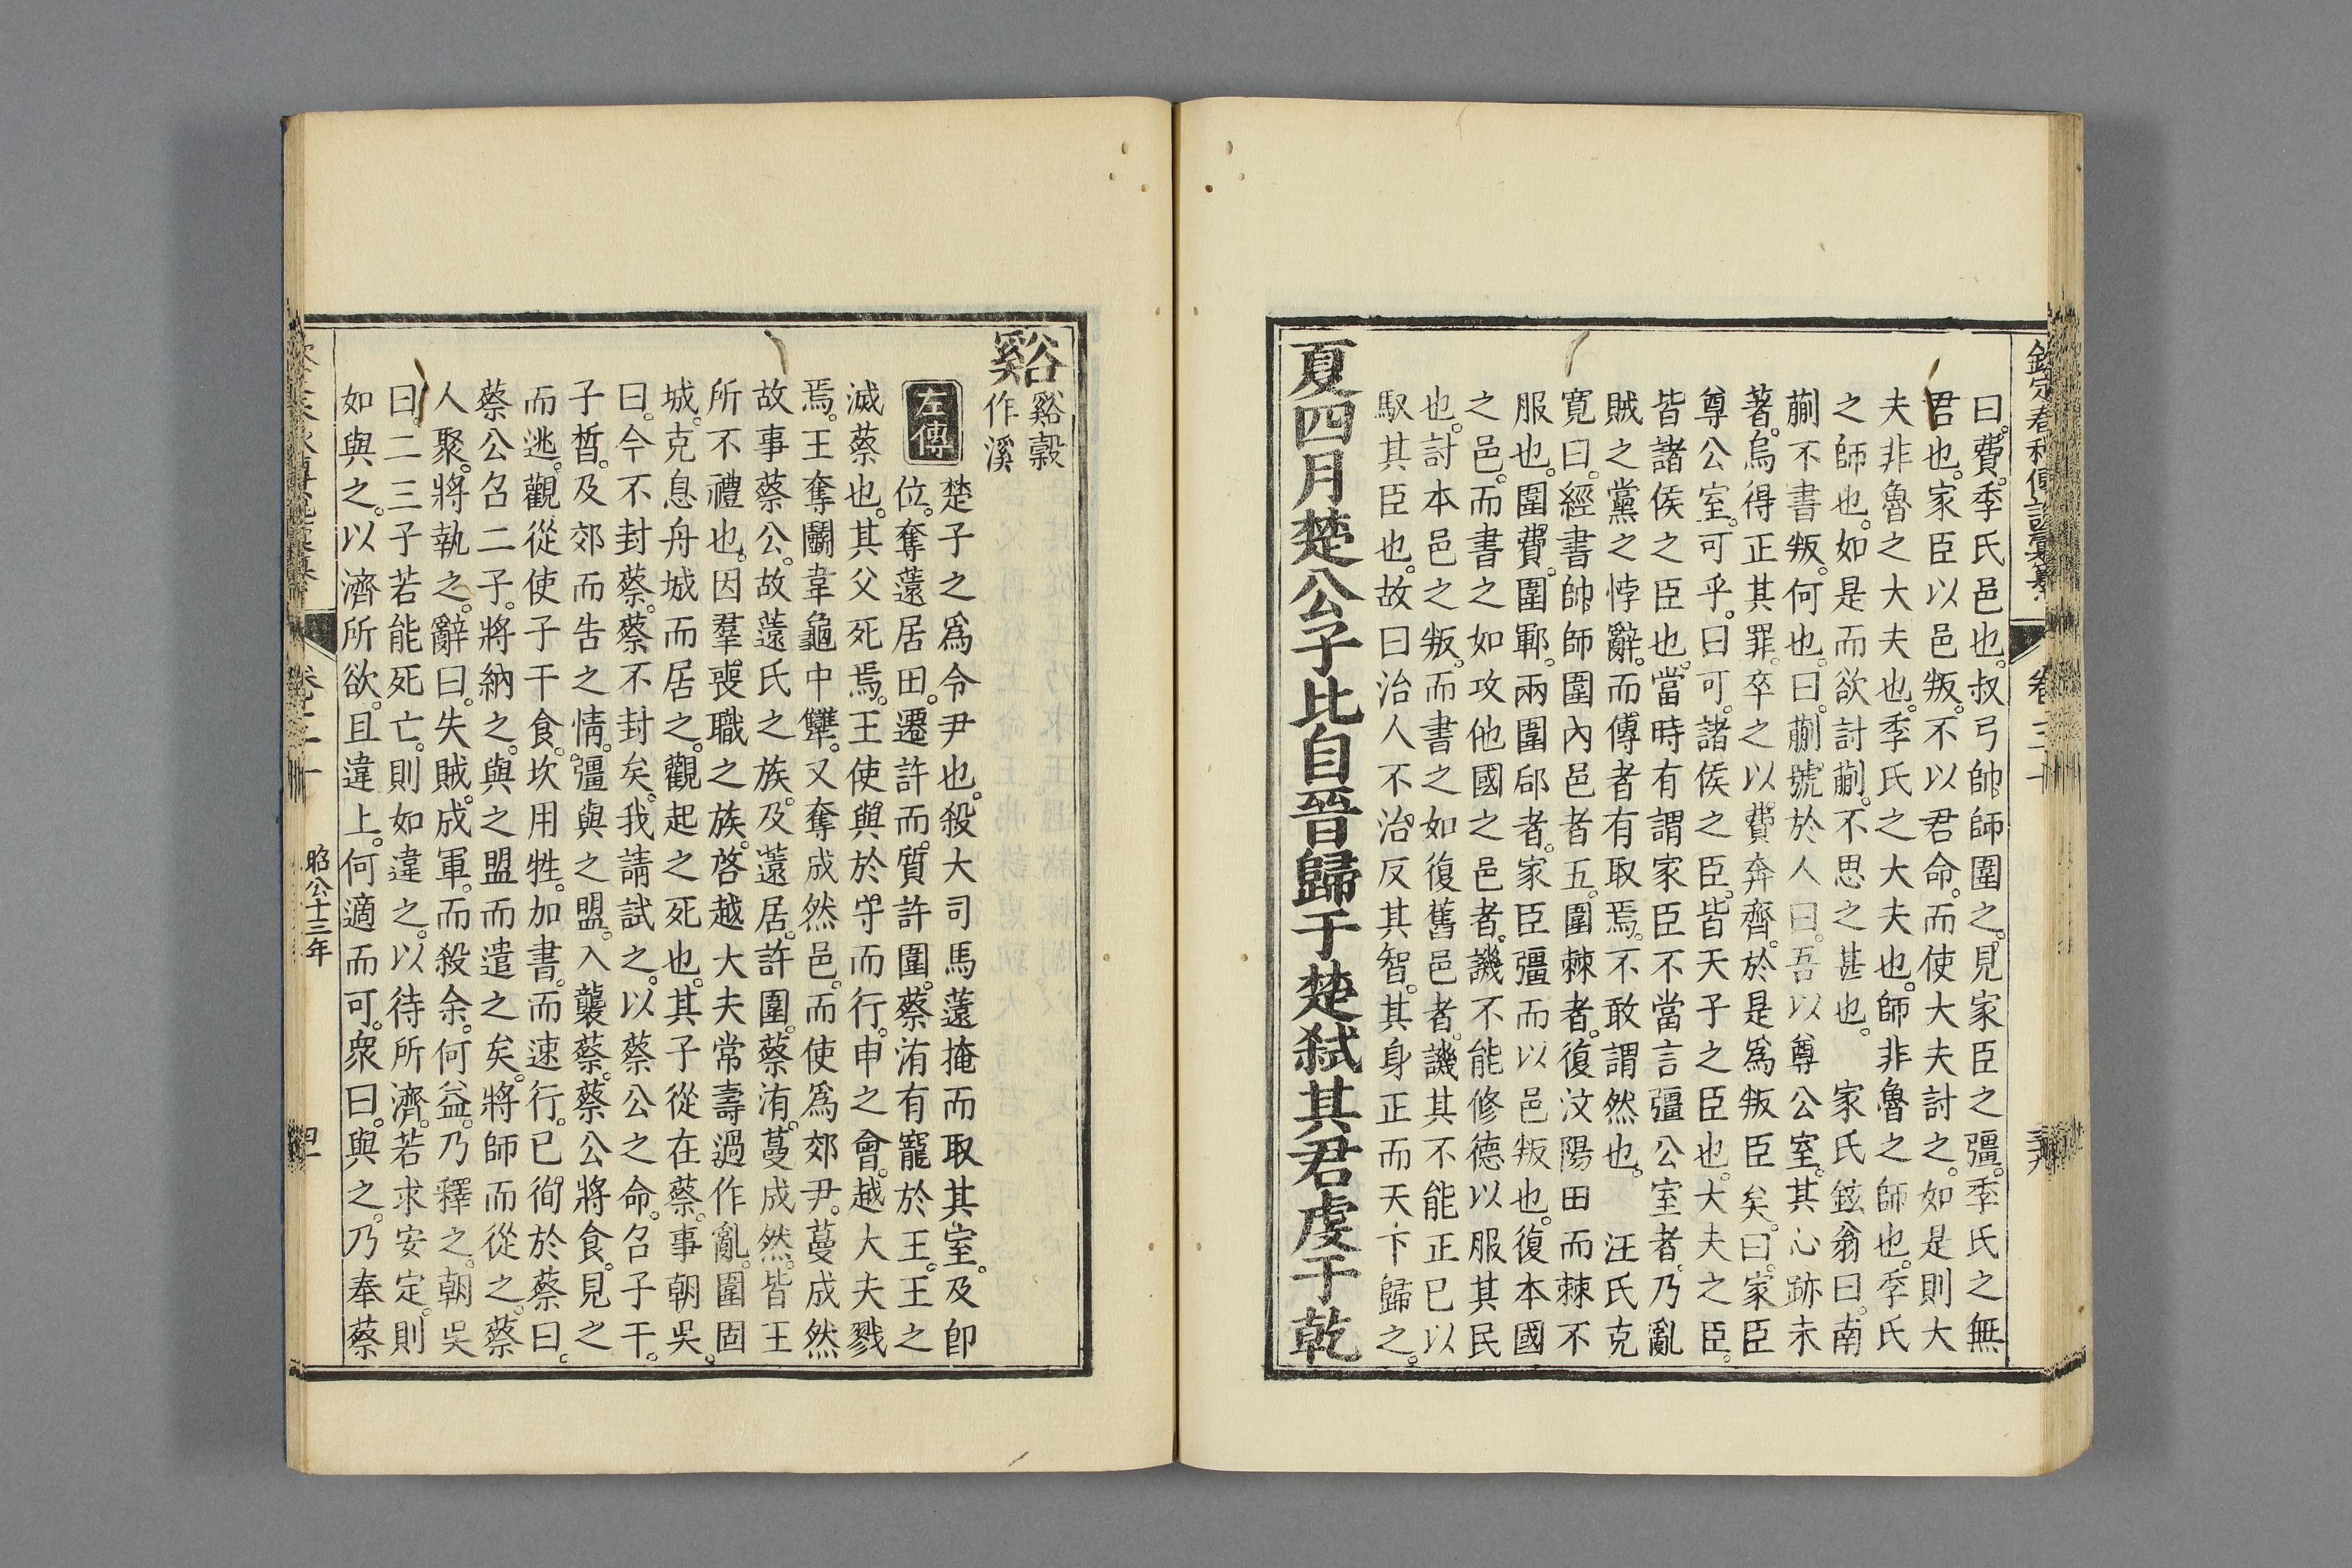 欽定春秋傳說彙纂
卷三十
曰。費。季氏邑也。叔弓帥師圍之。見家臣之彊。季氏之無
君也。家臣以邑叛。不以君命。而使大夫討之。如是則大
夫非魯之大夫也。季氏之大夫也。師非魯之師也。季氏
之師也。如是而欲討蒯。不思之甚也。家氏鉉翁曰。南
蒯不書叛。何也。曰。蒯號於人曰。吾以尊公室。其心跡未
著。烏得正其罪。卒之以費奔齊。於是爲叛臣矣。曰。家臣
尊公室。可乎。曰。可。諸侯之臣。皆天子之臣也。大夫之臣。
皆諸侯之臣也。當時有謂家臣不當言彊公室者。乃亂
賊之黨之悖辭。而傳者有取焉。不敢謂然也。汪氏克
寬曰。經書帥師圍內邑者五。圍棘者。復汶陽田而棘不
服也。圍費。圍鄆。兩圍郈者。家臣彊而以邑叛也。復本國
之邑。而書之如攻他國之邑者。譏不能修德以服其民
也。討本邑之叛。而書之如復舊邑者。譏其不能正已以
馭其臣也。故曰治人不治反其智。其身正而天下歸之。
夏四月楚公子比自晉歸于楚弑其君虔于乾
谿
谿穀
作溪
左傳
楚子之爲令尹也。殺大司馬薳掩而取其室。及卽
位。奪薳居田。遷許而。質許圍。蔡洧有寵於王。王之
滅蔡也。其父死焉。王使與於守而行。申之會。越大夫戮
焉。王奪鬬韋龜中犫。又奪成然邑。而使爲郊尹。蔓成然
故事蔡公。故薳氏之族。及薳居。許圍。蔡洧。蔓成然。皆王
所不禮也。因羣喪職之族。啓越大夫常壽過作亂。圍固
城。克息舟城而居之。觀起之死也。其子從在蔡。事朝吳。
曰。今不封蔡。蔡不封矣。我請試之。以蔡公之命。召子干。
子晳。及郊而告之情。彊與之盟。入襲蔡。蔡公將食。見之
而逃。觀從使子干食。坎用牲。加書。而速行。已徇於蔡曰。
蔡公召二子。將納之。與之盟而遣之矣。將師而從之。蔡
人聚。將執之。辭曰。失賊。成軍。而殺余。何益。乃釋之。朝吳
曰。二三子若能死亡。則如違之。以待所濟。若求安定。則
如與之。以濟所欲。且違上。何適而可。衆曰。與之。乃奉蔡
昭公十三年